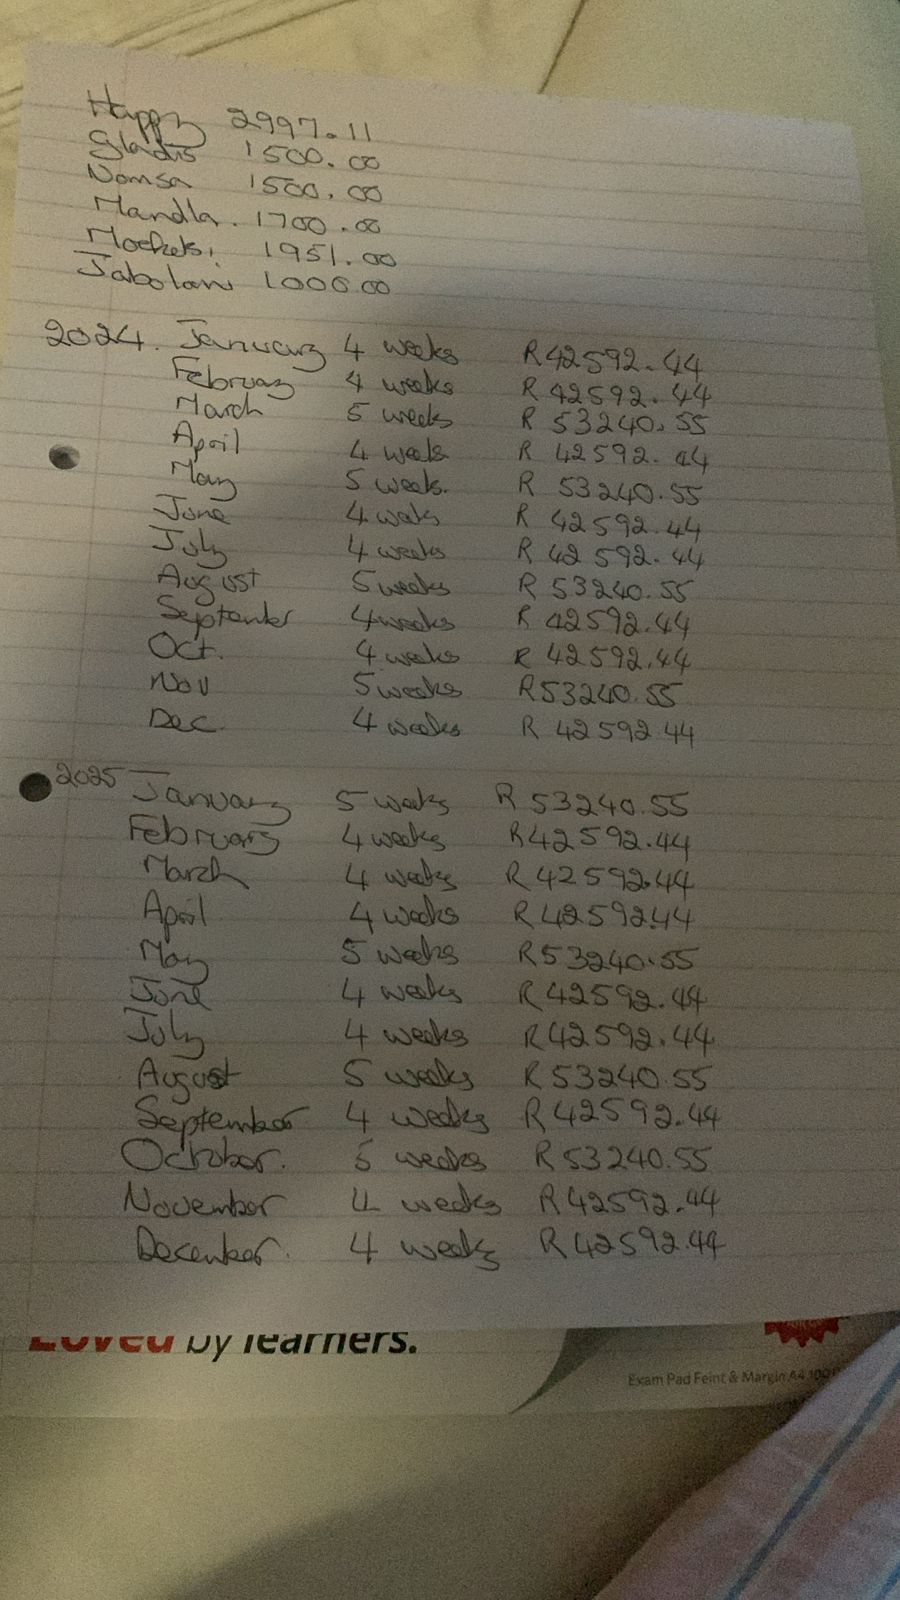 Happy 2997.11
Gladis 1500.00
Nomsa 1500.00
Mandla. 1700.00
1951.00
Jabolani 1000.00
2024. January 4 weeks R42592.44
February 4 weeks R 42592.44
March 5 weeks R 53240.55
April 4 weeks R 42592.44
May 5 weeks. R 53240.55
June 4 weeks R 42592.44
July 4 weeks R 42592.44
August 5 weeks R 53240.55
September 4 weeks R 42592.44
Oct. 4 weeks R 42592.44
Nov 5 weeks R53240.55
Dec. 4 weeks R 42592.44
2025 January 5 weeks R 53240.55
February 4 weeks R42592.44
March 4 weeks R 42592.44
April 4 weeks R42592.44
May 5 weeks R53240.55
June 4 weeks R42592.44
July 4 weeks R42592.44
August 5 weeks R53240.55
September 4 weeks R42592.44
October. 5 weeks R53240.55
November 4 weeks R42592.44
December. 4 weeks R42592.44
Loved by learners.
Exam Pad Feint & Margin A4